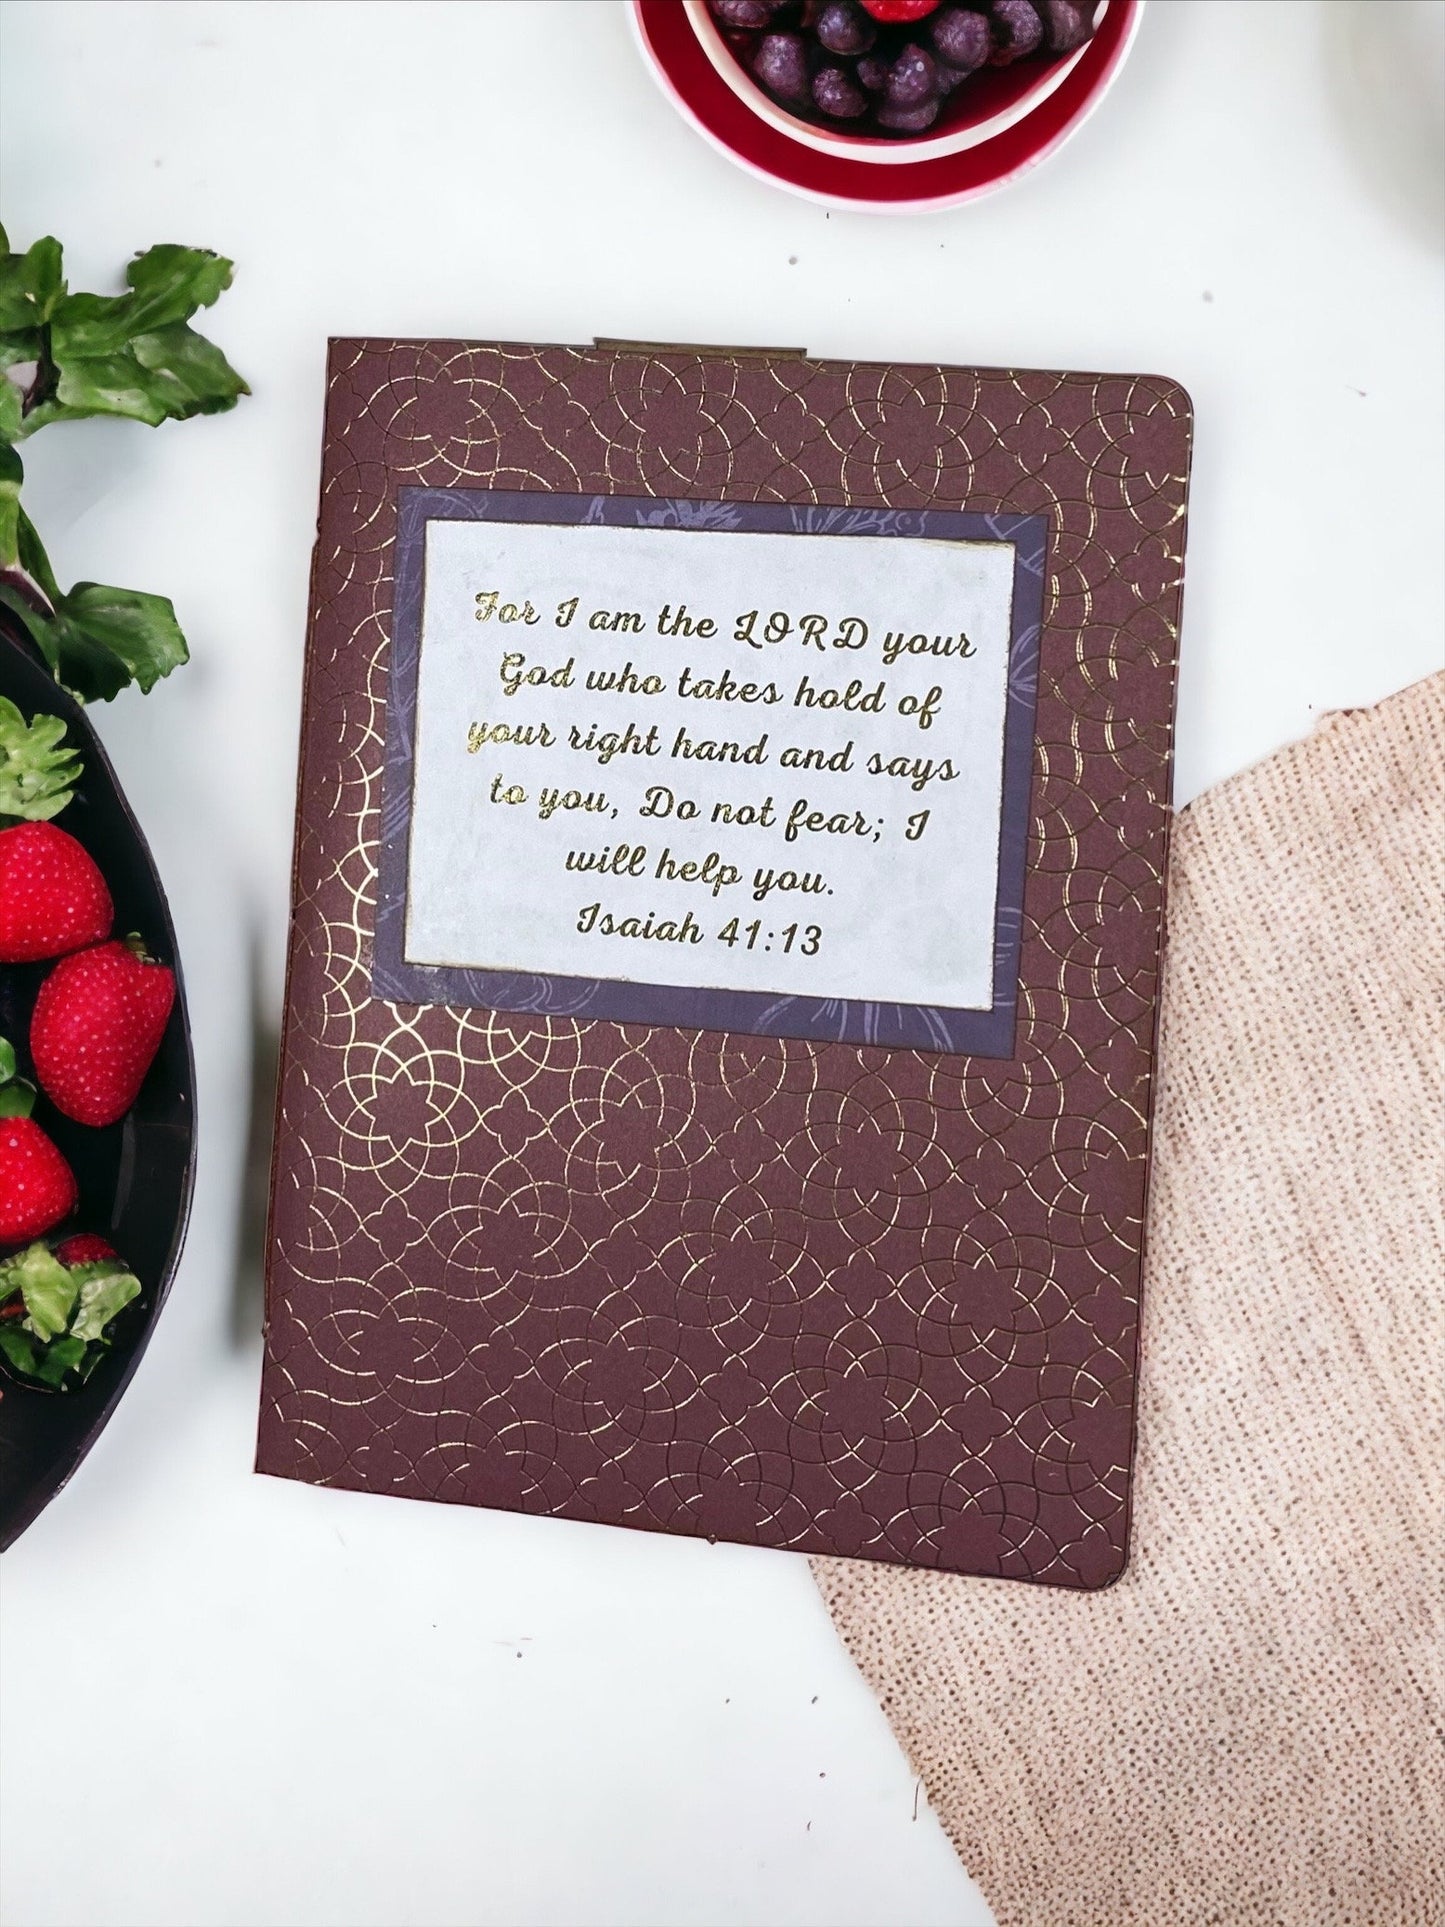 For I am the LORD your
God who takes hold of
your right hand and says
to you, Do not fear; I
will help you.
Isaiah 41:13